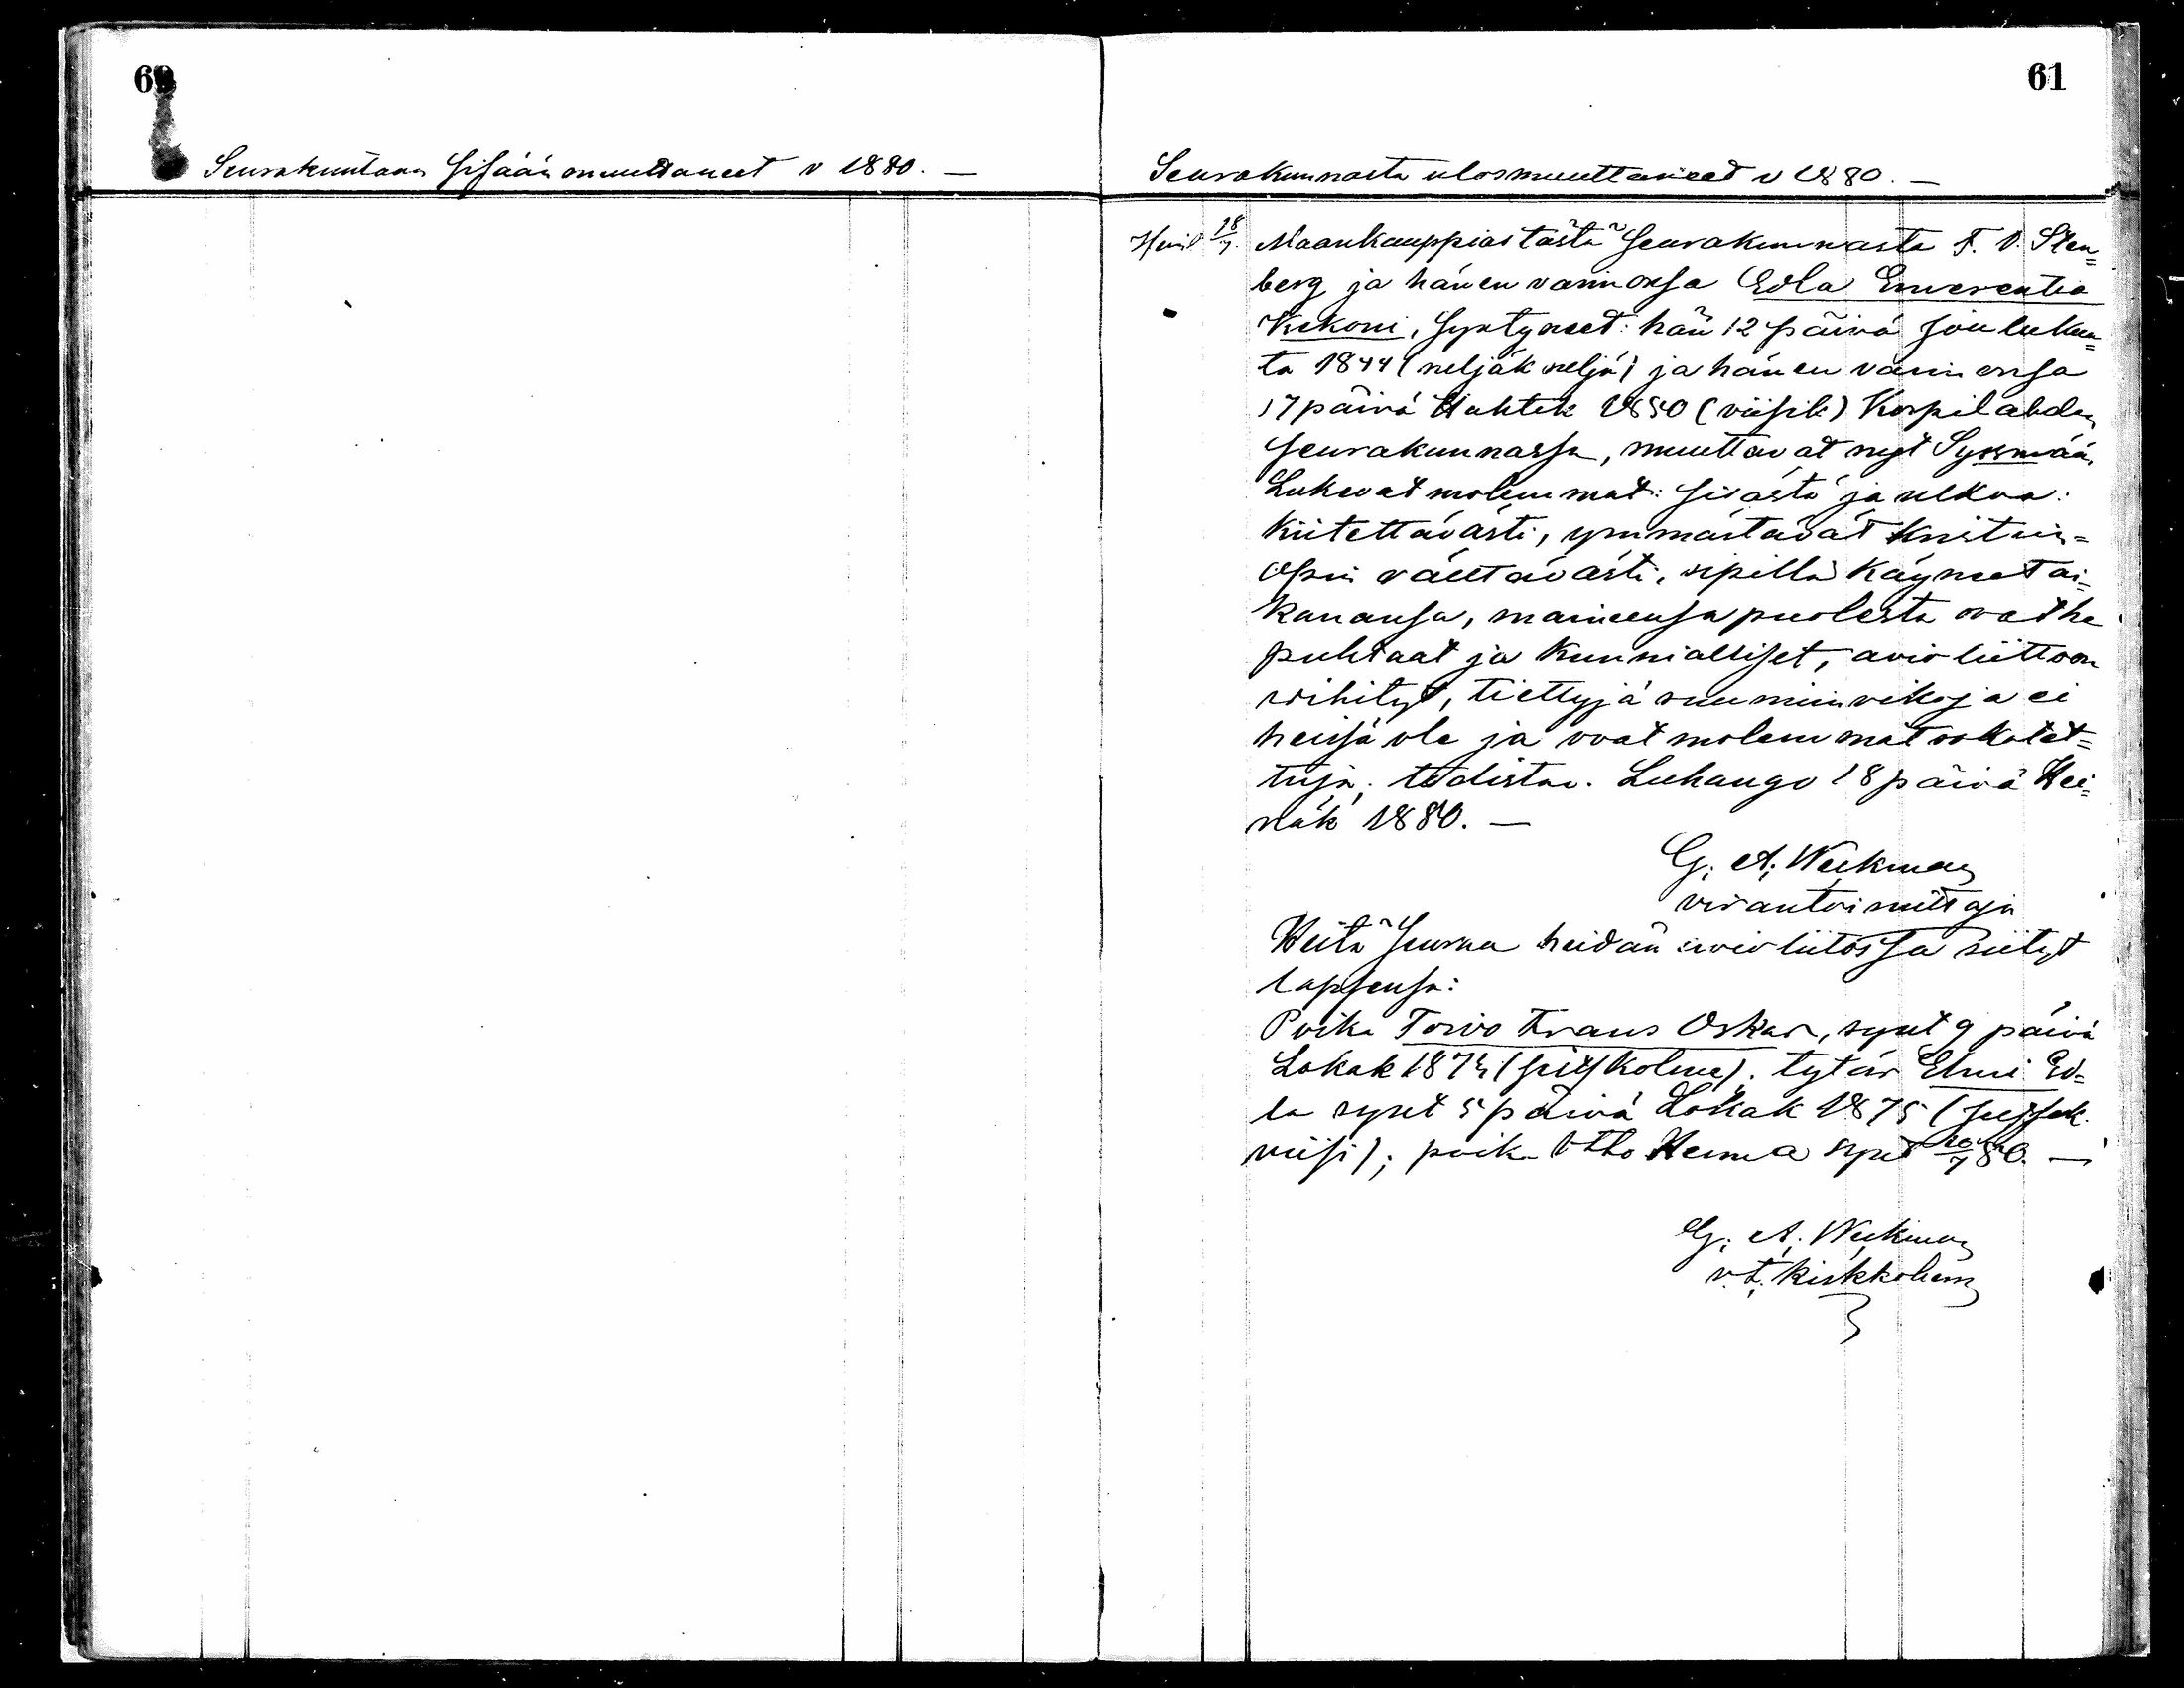 60
Seurakuntaan sisään muuttaneet v 1880. —
61
Seurakunnasta ulosmuuttaneet v 1880. —
18/7. Maankauppias tästä seurakunnasta F. O. Sten=
berg ja hänen vaimonsa Edla Emerentia
Kekoni, syntyneet: hän 12 päivä Joulukuu=
ta 1844 (neljäk neljä) ja hänen vaimonsa
17 päivä Huhtik 1850 (viisik) Korpilahden
seurakunnassa, muuttavat nyt Sysmään
Lukevat molemmat: sisästä ja ulkoa:
kiitettävästi, ymmärtävät Kristin=
opin välttävästi, ripillä käyneet ai=
kanansa, maineensa puolesta ovat he
puhtaat ja kunnialliset, avioliittoon
vihityt, tiettyjä ruumiin vikoja ei
heissä ole ja ovat molemmat rokotet=
tuja; todistaa. Luhango 18 päivä Hei=
näk 1880. —
G. A. Weckman
virantoimittaja
Heitä seuraa heidän avioliitossa siityt
lapsensa:
Poika Toivo Frans Oskar, synt 9 päivä
Lokak 1873 (seits kolme). tytär Elmi Ed=
la synt 5 päivä Lokak 1875 (seitsek.
viisi); poika Otto Herma synt 10/7 80. —
G. A. Weckman
v.t. kirkkoherra